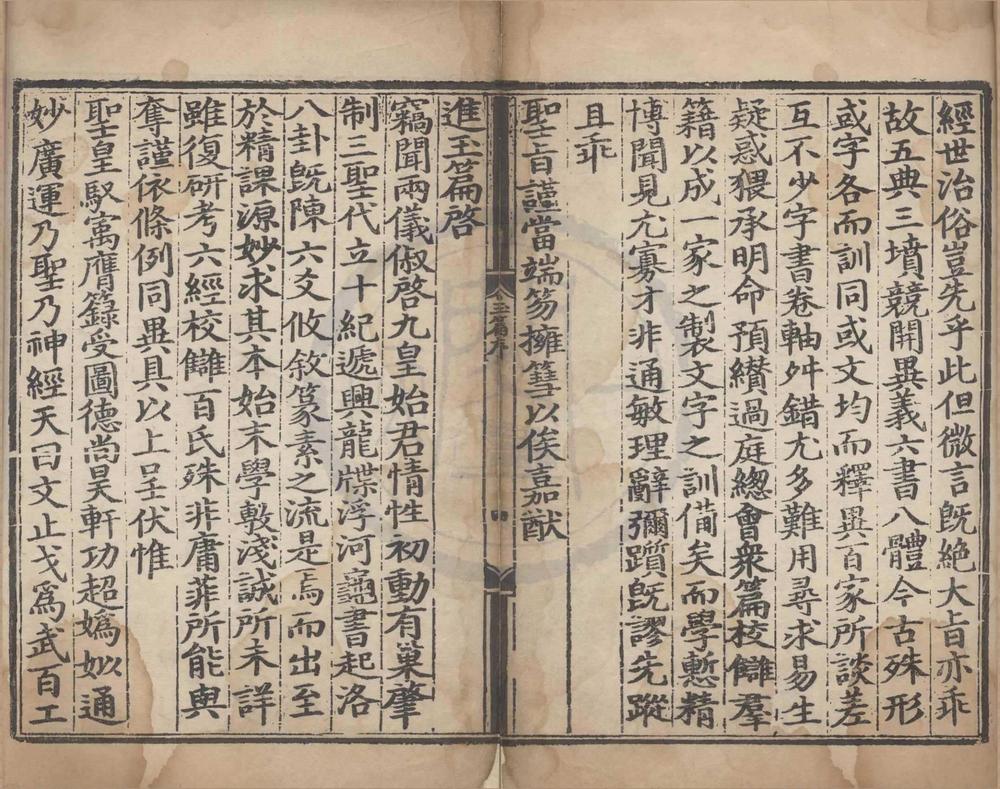 經世治俗豈先乎此但微言既絶大旨亦乖
故五典三墳競開異義六書八體今古殊形
或字各而訓同或文均而釋異百家所談差
互不少字書卷軸舛錯尤多難用尋求易生
疑惑猥承明命預纉過庭緫會衆篇校讎羣
籍以成一家之製文字之訓備矣而學慙精
博聞見尤寡才非通敏理辭彌躓既謬先蹤
且乖
聖旨謹當端笏擁篲以俟嘉猷
進玉篇啓
竊聞兩儀俶啓九皇始君情性初動有巢肇
制三聖代立十紀遞興龍牒浮河龜書起洛
八卦既陳六爻攸敘篆素之流是焉而出至
於精課源妙求其本始末學敷淺誠所未詳
雖復研考六經校讎百氏殊非庸菲所能與
奪謹依條例同異具以上呈伏惟
聖皇馭㝢膺籙受圖德尚昊軒功超嬀姒通
妙廣運乃聖乃神經天曰文止戈爲武百工
玉篇序
四